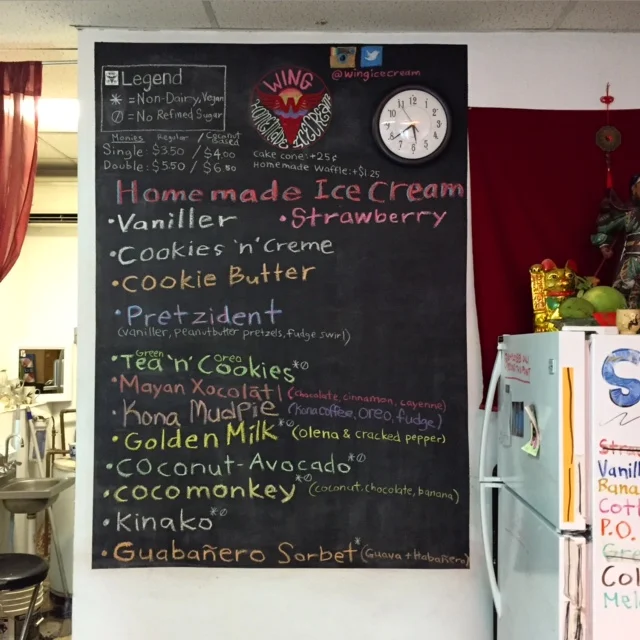 Legend
* = Non-Dairy, Vegan
Ø = No Refined Sugar
Monies Regular / Coconut Based
Single: $3.50 / $4.00
Double: $5.50 / $6.50
WING
@wingicecream
cake cone: +25¢
Homemade Waffle: +$1.25
Homemade Ice Cream
• Vaniller
• Strawberry
• Cookies 'n' Creme
• Cookie Butter
• Pretzident
(vaniller, peanutbutter pretzels, fudge swirl)
• Green Tea 'n' Oreo Cookies *Ø
• Mayan Xocolātl (chocolate, cinnamon, cayenne)
• Kona MudPie (Kona Coffee, Oreo, fudge)
• Golden Milk *Ø (olena & cracked pepper)
• Coconut-Avocado *Ø
• cocomonkey *Ø (coconut, chocolate, banana)
• Kinako *Ø
• Guabañero Sorbet * (Guava + Habañero)
12
11
10
9
8
7
6
5
4
3
2
1